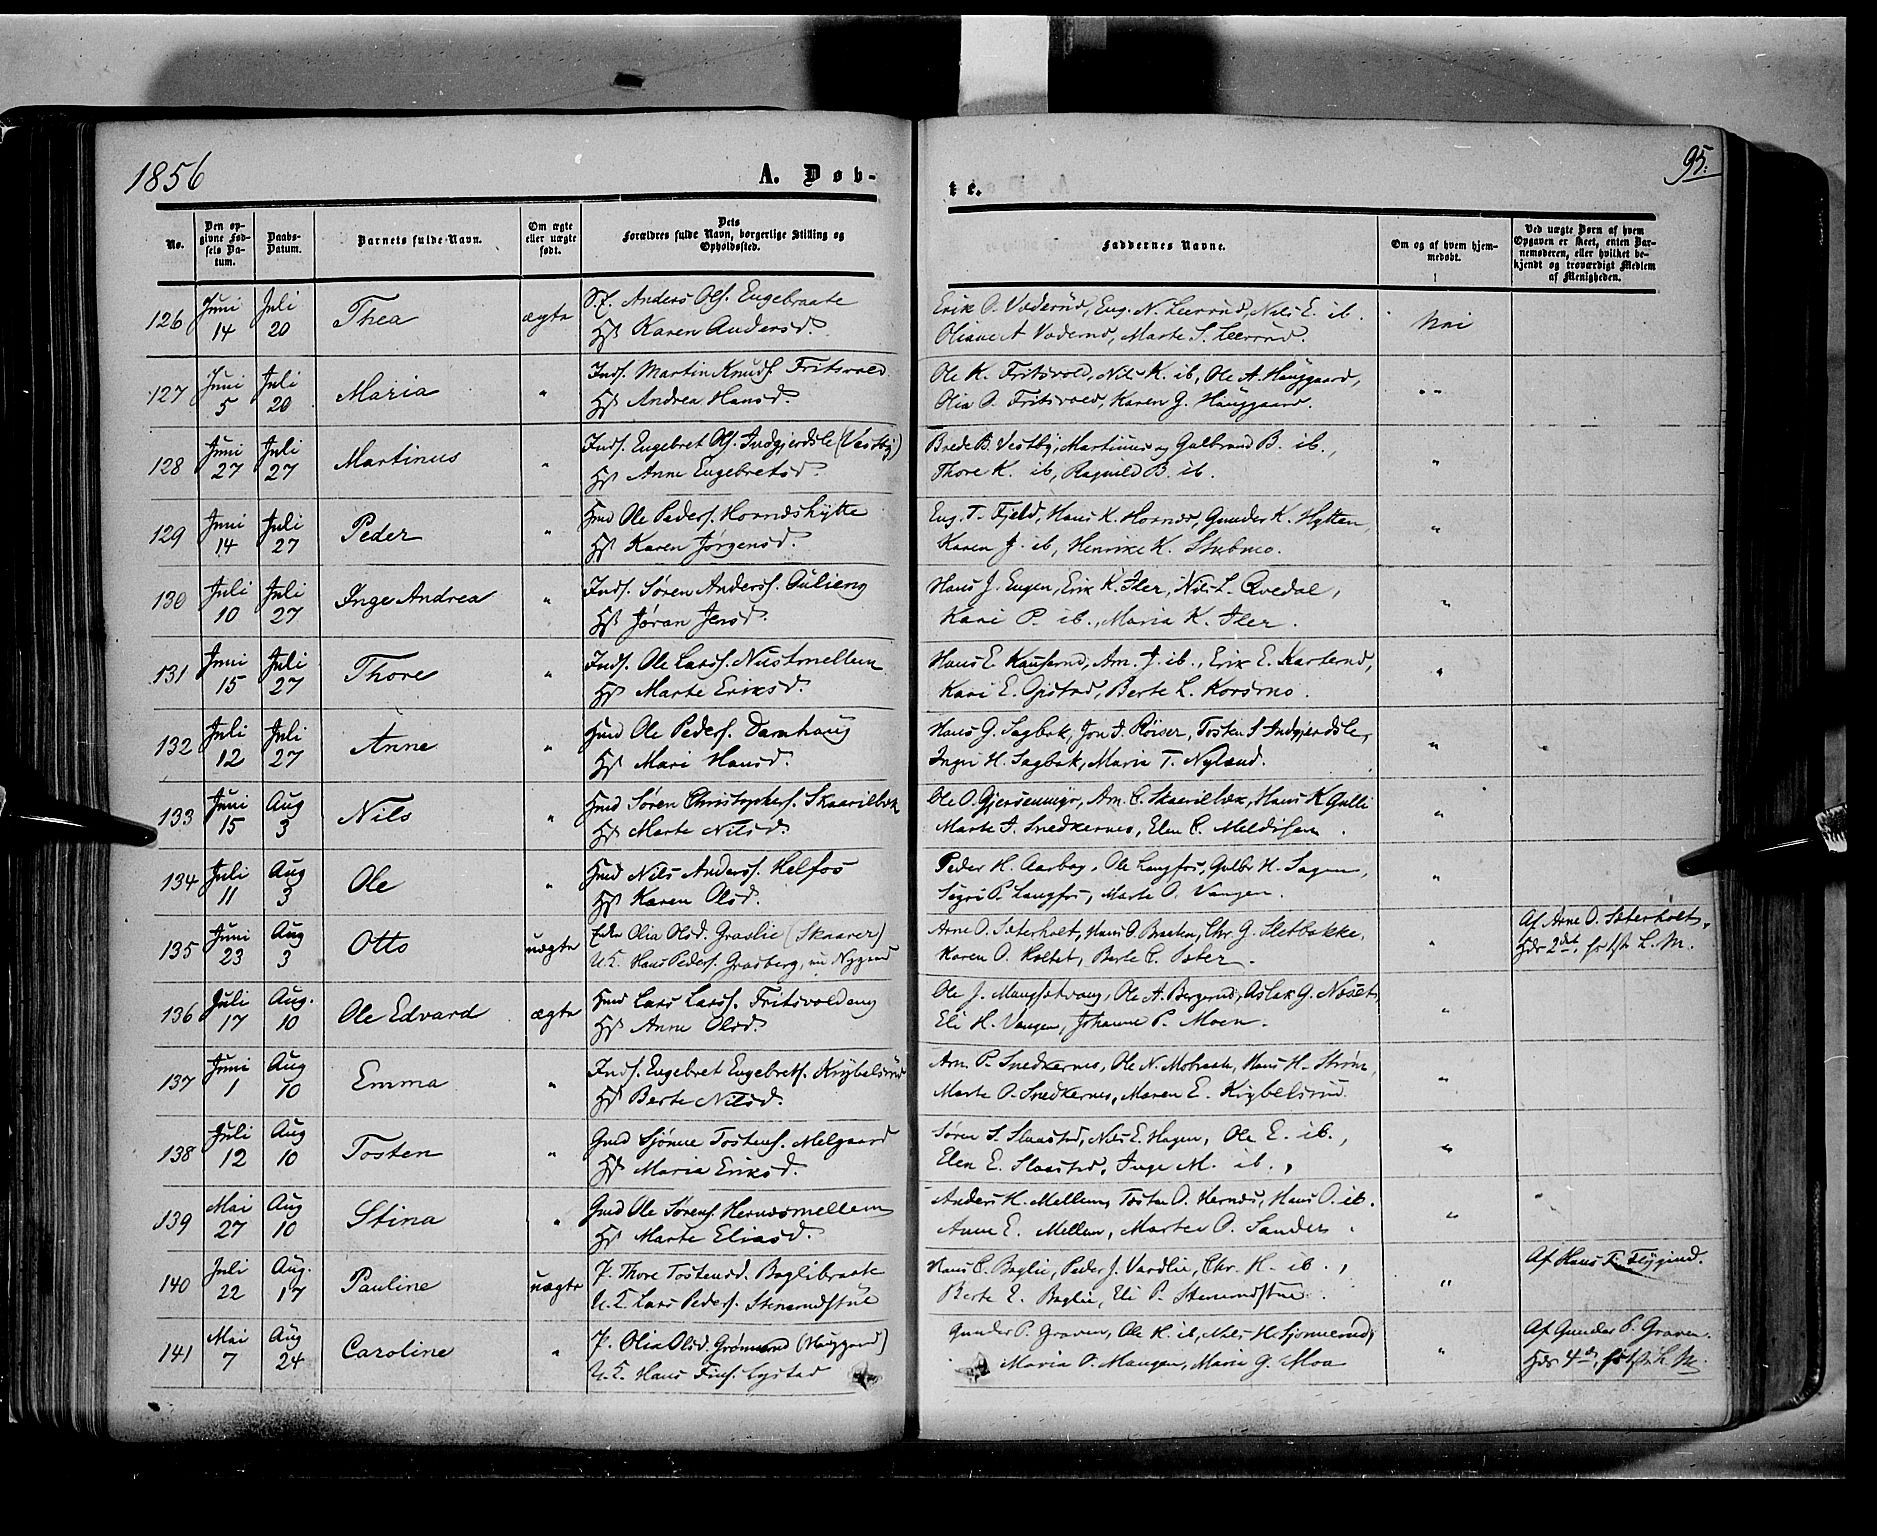 1856
A. Døb-
te.
95.
No.
Den op-
givne Fød-
sels Da-
tum.
Daabs-
Datum.
Barnets fulde Navn.
Om ægte
eller uægte
født.
Dets
Forældres fulde Navn, borgerlige Stilling og
Opholdssted.
Faddernes Navne.
Om og af hvem hjem-
medøbt.
Ved uægte Børn af hvem
Opgaven er skeet, enten Bar-
nemoderen, eller hvilket be-
kjendt og troværdigt Medlem
af Menigheden.
126 Juni 14 Juli 20 Thea ægte Anders Ols. Engebraate
Karen Andersd.
Erik O. Vaderud, Eng. N. Leerrud, Nils E. ib.
Oliane A Vaderud, Marte S. Leerrud.
Nei
127 Juni 5 Juli 20 Maria " Inds. Martin Knuds. Fritsvold
Andrea Hansd.
Ole K. Fritsvold, Nils K. ib, Ole A. Hauggaard,
Olia O. Fritsvold, Karen G. Hauggaard.
" "
128 Juni 27 Juli 27 Martinus " Inds. Engebret Ols. Indgjerdsle (Vestby)
Anne Engebretsd.
Brede B. Vestby, Martinus og Gulbrand B. ib.,
Thore K. ib, Ragnild B. ib.
"
129 Juni 14 Juli 27 Peder " Hmd Ole Peders. Hornæshytte
Karen Jørgensd.
Eng. T. Fjeld, Hans K. Hornæs, Gunder K. Hytten,
Karen J. ib, Henrike K. Stubmo.
"
130 Juli 10 Juli 27 Inge Andrea " Inds. Søren Anderss. Aulieng
Jøran Jensd.
Hans J. Engen, Erik K. Iler, Nils L. Qvedal,
Kari P. ib., Maria K. Iler.
"
131 Juni 15 Juli 27 Thore " Inds. Ole Larss. Nustmellem
Marte Eriksd.
Hans E. Am. J. ib., Erik E. Karterud,
Kari E. Opstad, Berte L. Korsmo.
"
132 Juli 12 Juli 27 Anne " Hmd Ole Peders. Damhaug
Mari Hansd.
Hans G. Sagbak, Jon J. Røiser, Tosten S Indgjerdsle,
Ingri H. Sagbak, Marie T. Nyland.
"
133 Juni 15 Aug 3 Nils " Hmd Søren Christophers. Skaarilbæk
Marte Nilsd.
Ole O. Am. C. Skaarilbæk, Hans K Gulli
Marte J. Snedkernes, Elen C.
"
134 Juli 11 Aug 3 Ole " Hmd Nils Anderss. Helfos
Karen Olsd.
Peder H. Aarbog, Ole Langfos, Gulbr H. Sagen,
Sigri P. Langfos, Marte O. Vangen.
"
135 Juni 23 Aug 3 Otto uægte Olia Olsd. Graslie (Skaarer)
U.F. Hans Peders. Grasberg, nu Nygard
Arne O. Sæterholt, Hans O. Braaten, Chr. G. Sletbakke,
Karen O. Holtet, Berte C. Øster.
"
Af Arne O. Sæterholt.
Hds 2det.
136 Juli 17 Aug. 10 Ole Edvard ægte Hmd Lars Larss. Fritsvoldeng
Anne Olsd.
Ole J. Ole A. Bergerud, Aslak G. Næset,
Eli H. Vangen, Johanne P. Moen.
"
137 Juni 1 Aug 10 Emma " Inds. Engebret Engebrets. Krybelsrud
Berte Nilsd.
Am. P. Snedkernes, Ole N. Mobraate, Hans H. Strøm,
Marte O. Snedkernes, Maren E. Krybelsrud.
"
138 Juli 12 Aug 10 Tosten " Gmd Sjønne Tostens. Melgaard
Maria Eriksd.
Søren S. Slaastad, Nils E. Hagen, Ole E. ib.,
Elen E. Slaastad, Inge M. ib.,
"
139 Mai 27 Aug 10 Stina " Gmd Ole Sørens. Hernæsmellem
Marte Eliasd.
Anders H. Mellem, Tosten O. Hernæs, Hans O. ib.
Anne E. Mellem, Marte O. Sander.
"
140 Juli 22 Aug. 17 Pauline uægte P. Thore Tostensd. Baglibraate
U.F. Lars Peders.
Hans C. Baglie, Peder J. Vardlie, Chr. H. ib.,
Berte E. Baglie, Eli P.
"
Af Hans F. Flygind.
141 Mai 7 Aug 24 Caroline " P. Olia Olsd. Grønnerud (Hauggaard)
U.F. Hans Fins. Lystad
Gunder P. Graven, Ole H. ib, Nils H. Sjønnerud,
Maria O. Maugen, Marie G. Moa
"
Af Gunder P. Graven.
Hds 4de